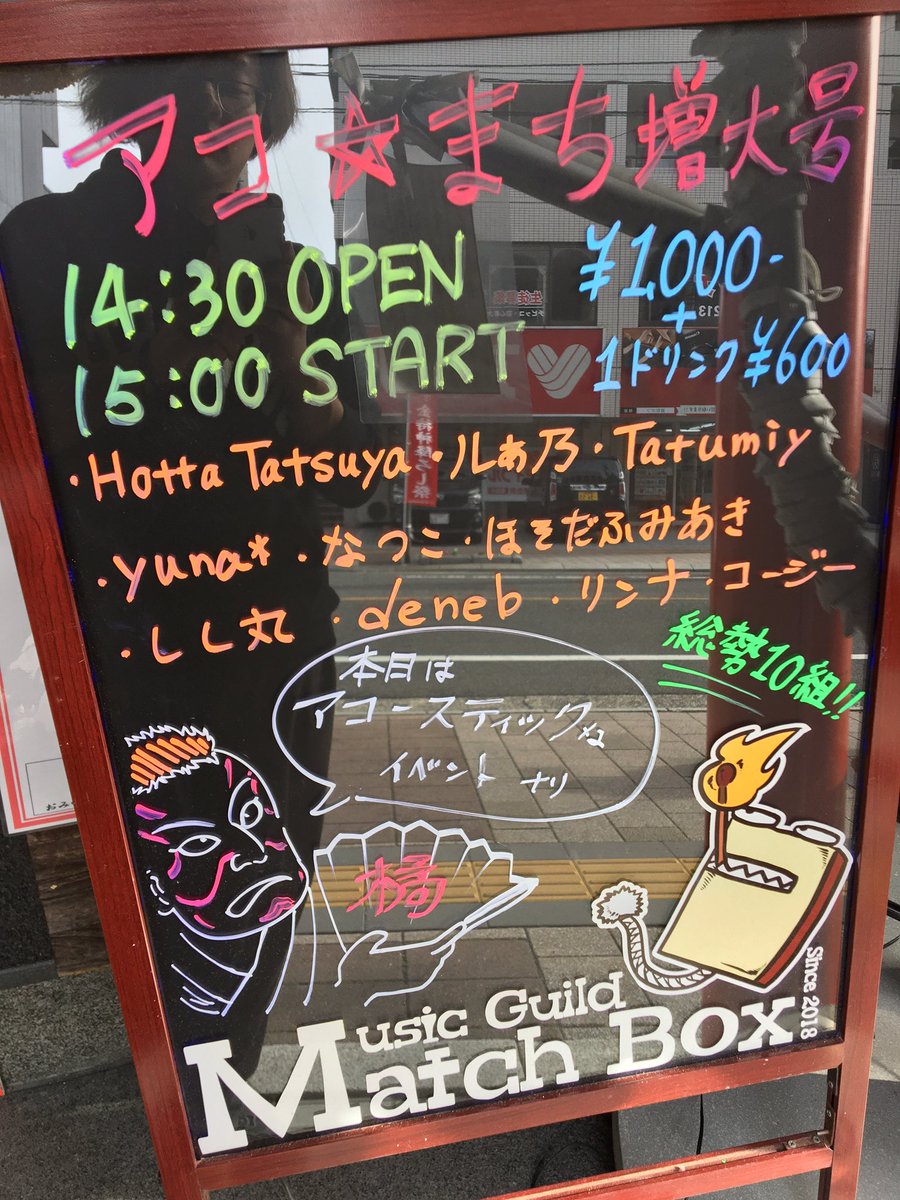 アコ☆まち増大号
14:30 OPEN
15:00 START
¥1,000-
+
1ドリンク¥600
・Hotta Tatsuya・ルぁ乃・Tatumiy
・yuna*・なつこ・ほそだふみあき
・しし丸・deneb・リンナ・コージー
総勢10組!!
本日は
アコースティックな
イベント ナリ
橘
Music Guild
Match Box
Since 2018